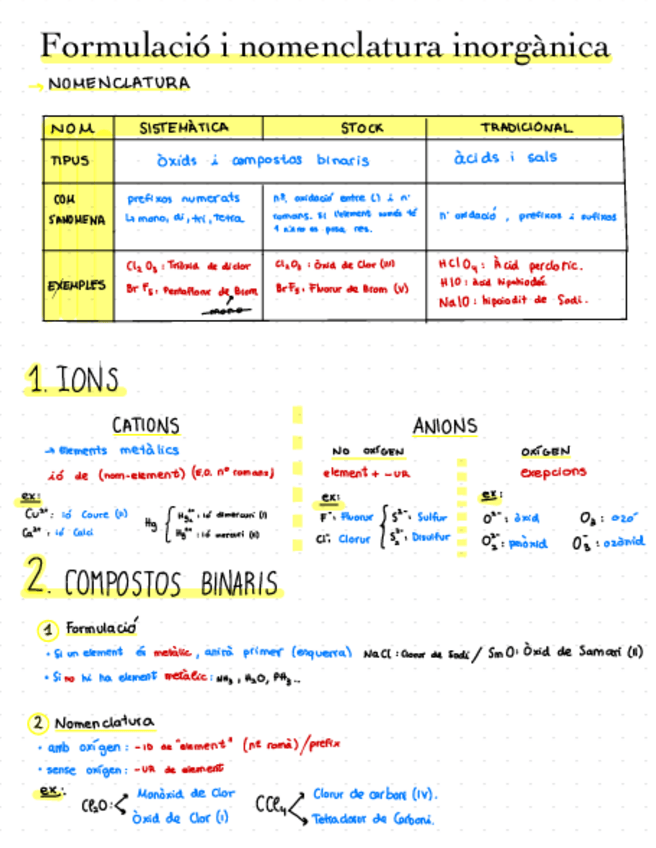 Formulació i nomenclatura inorgànica
→ NOMENCLATURA
NOM SISTEMÀTICA STOCK TRADICIONAL
TIPUS òxids i compostos binaris àcids i sals
COM S'ANOMENA
prefixos numerats
↳ mono, di, tri, tetra
nº oxidació entre () i nº
romans. Si l'element només té
1 no es posa res.
nº oxidació, prefixos i sufixos
EXEMPLES
Cl₂O₃: Triòxid de diclor
BrF₅: Pentafluorur de Brom
mono
Cl₂O₃: òxid de Clor (III)
BrF₅: Fluorur de Brom (V)
HClO₄: Àcid perclòric.
HIO: àcid hipoiodós
NaIO: hipoiodit de Sodi.
1. IONS
CATIONS
→ elements metàl·lics
ió de (nom-element) (E.O. nº romans)
ex:
Cu²⁺: ió Coure (II)
Ca²⁺: ió Calci
Hg
Hg₂²⁺: ió dimercuri (I)
Hg²⁺: ió mercuri (II)
ANIONS
NO OXÍGEN
element + -UR
ex:
F⁻: Fluorur
Cl⁻: Clorur
S²⁻: Sulfur
S₂²⁻: Disulfur
OXÍGEN
exepcions
ex:
O²⁻: òxid
O₂²⁻: peròxid
O₃: ozó
O₃⁻: ozònid
2. COMPOSTOS BINARIS
1 Formulació
• Si un element és metàl·lic, anirà primer (esquerra) NaCl: Clorur de Sodi / SmO: Òxid de Samari (II)
• Si no hi ha element metàl·lic: NH₃, H₂O, PH₃...
2 Nomenclatura
• amb oxígen: -ID de "element" (nº romà)/prefix
• sense oxígen: -UR de element
ex:
Cl₂O:
Monòxid de Clor
Òxid de Clor (I)
CCl₄
Clorur de carboni (IV).
Tetraclorur de Carboni.